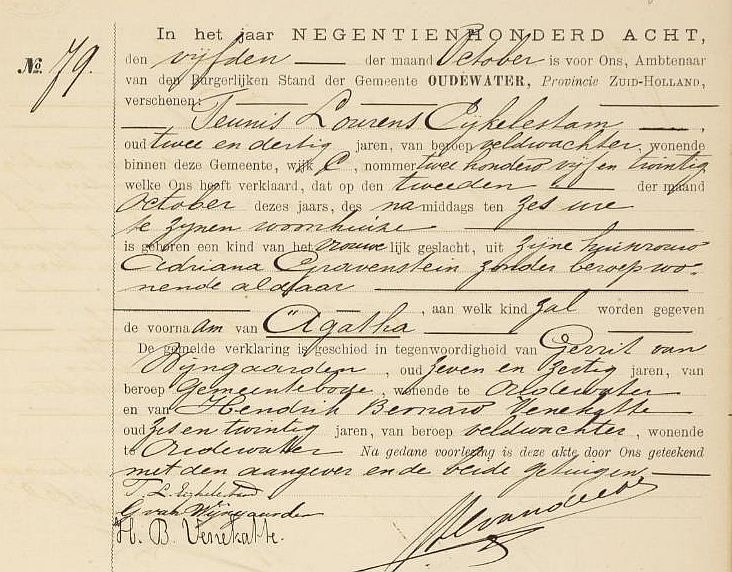 In het jaar NEGENTIENHONDERD ACHT,
No. 79.
den vijfden der maand October is voor Ons, Ambtenaar
van den Burgerlijken Stand der Gemeente OUDEWATER, Provincie ZUID-HOLLAND,
verschenen:
Teunis Lourens Eijkelestam,
oud twee en dertig jaren, van beroep veldwachter, wonende
binnen deze Gemeente, wijk C, nommer twee honderd vijf en twintig
welke Ons heeft verklaard, dat op den tweeden der maand
October dezes jaars, des namiddags ten zes ure
te zijnen woonhuize
is geboren een kind van het vrouwelijk geslacht, uit zijne huisvrouw
Adriana Gravenstein zonder beroep wo-
nende aldaar
, aan welk kind zal worden gegeven
de voornaam van Agatha
De gemelde verklaring is geschied in tegenwoordigheid van Gerrit van
Wijngaarden, oud zeven en zestig jaren, van
beroep gemeentebode, wonende te Oudewater
en van Hendrik Bernard Venekatte
oud zes en twintig jaren, van beroep veldwachter, wonende
te Oudewater Na gedane voorlezing is deze akte door Ons geteekend
met den aangever en de beide getuigen.
T. L. Eijkelestam
G van Wijngaarden
H. B. Venekatte.